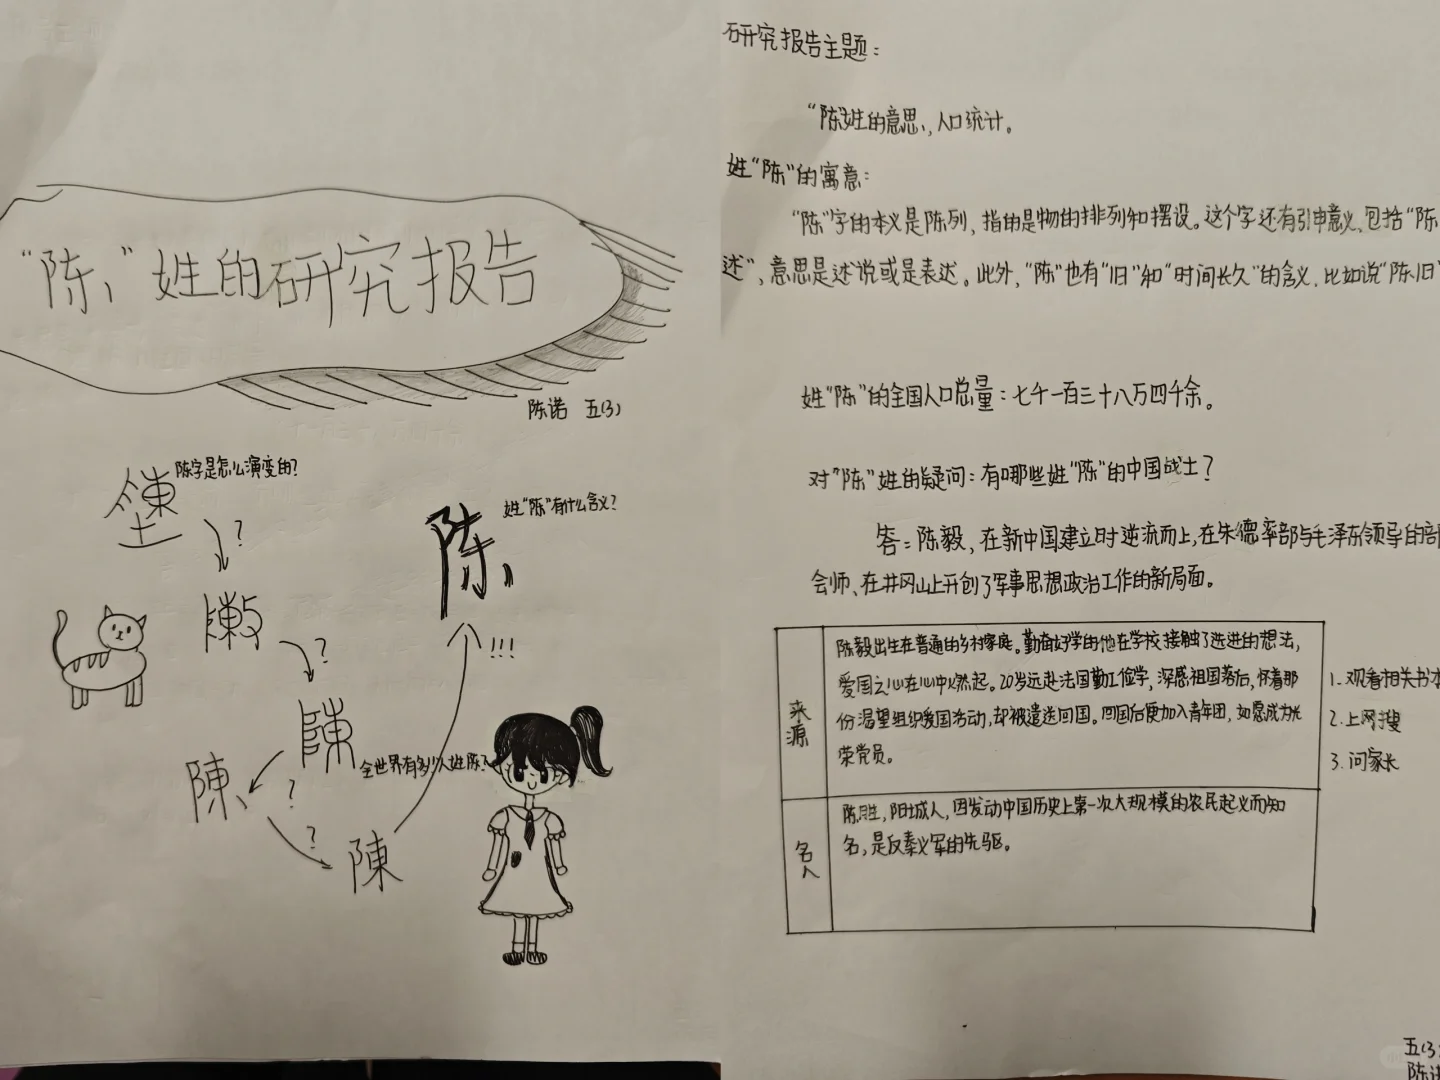 “陈”姓的研究报告
陈诺 五(3)
陈字是怎么演变的?
?
?
陳
?
陳
?
陳
!!!
陈
姓“陈”有什么含义?
全世界有多少人姓陈?
研究报告主题:
“陈”姓的意思,人口统计。
姓“陈”的寓意:
“陈”字的本义是陈列,指的是物的排列和摆设。这个字还有引申意义,包括“陈
述”,意思是述说或是表达。此外,“陈”也有“旧”和“时间长久”的含义,比如说“陈旧
姓“陈”的全国人口总量:七千一百三十八万四千余。
对“陈”姓的疑问:有哪些姓“陈”的中国战士?
答:陈毅,在新中国建立时逆流而上,在朱德率部与毛泽东领导的部
会师、在井冈山上开创了军事思想政治工作的新局面。
来源
陈毅出生在普通的乡村家庭。勤奋好学的他在学校接触了先进的想法,
爱国之心在心中燃起。20岁远赴法国勤工俭学,深感祖国落后,怀着那
份渴望组织爱国活动,却被遣送回国。回国后便加入青年团,如愿成为光
荣党员。
名人
陈胜,阳城人,因发动中国历史上第一次大规模的农民起义而知
名,是反秦义军的先驱。
1.观看相关书本
2.上网搜
3.问家长
五(3
陈诺